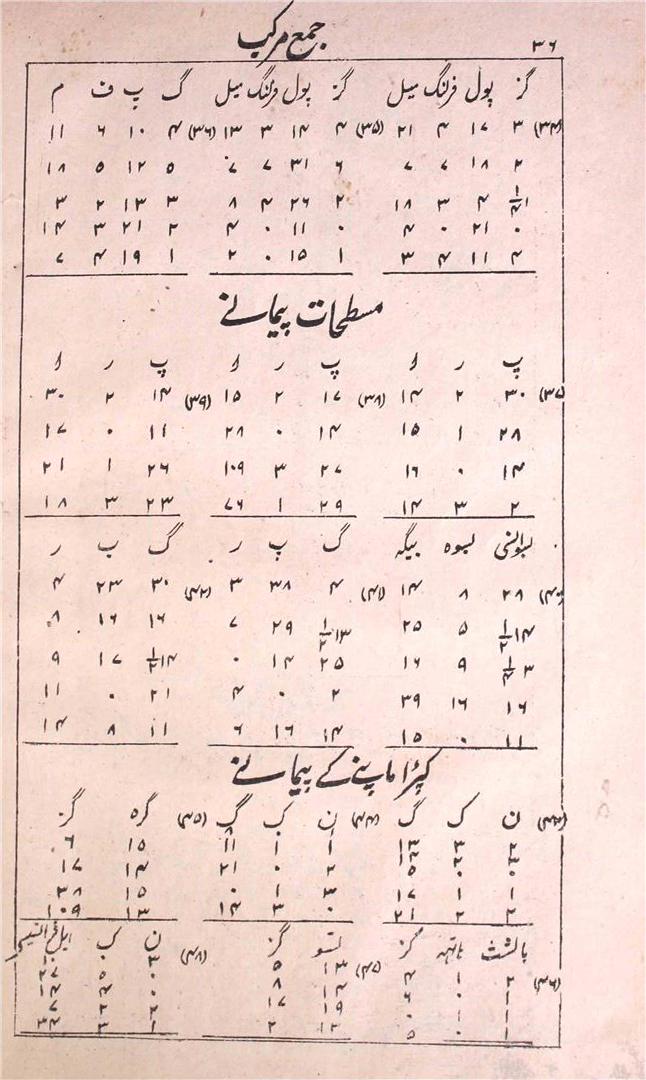 ۳۶ جمع مرکب
گز پول فرلنگ میل گز پول فرلنگ میل گ پ ف م
(۳۴) ۳ ۱۷ ۴ ۲۱ (۳۵) ۴ ۱۴ ۳ ۱۳ (۳۶) ۴ ۱۰ ۶ ۱۱
۲ ۱۸ ۷ ۷ ۶ ۳۱ ۷ ۷ ۵ ۱۲ ۵ ۱۸
۴ ۳ ۱۸ ۲ ۲۶ ۴ ۸ ۳ ۱۳ ۲ ۳
۰ ۲۱ ۰ ۴ ۰ ۱۱ ۰ ۴ ۲ ۲۱ ۳ ۱۴
۴ ۱۱ ۴ ۳ ۱ ۱۵ ۰ ۲ ۱ ۱۹ ۴ ۷
مسطحات پیمانے
پ ر و پ ر و پ ر و
(۳۷) ۳۰ ۲ ۱۴ (۳۸) ۱۷ ۲ ۱۵ (۳۹) ۱۴ ۲ ۳۰
۲۸ ۱ ۱۵ ۱۴ ۰ ۲۸ ۱۱ ۰ ۱۷
۱۴ ۰ ۱۶ ۲۷ ۳ ۱۰۹ ۲۶ ۱ ۲۱
۲ ۳ ۱۴ ۲۹ ۱ ۷۶ ۲۳ ۳ ۱۸
بسوانسی بسوہ بیگہ گ پ ر گ پ ر
(۴۰) ۲۸ ۸ ۱۴ (۴۱) ۴ ۳۸ ۳ (۴۲) ۳۰ ۲۳ ۴
۱۴½ ۵ ۲۵ ۱۳½ ۲۹ ۷ ۱۶ ۱۶ ۸
۹ ۱۶ ۲۵ ۱۴ ۰ ۱۴½ ۱۷ ۹
۱۶ ۱۶ ۳۹ ۲ ۰ ۴ ۲۱ ۰ ۱۱
۱۱ ۰ ۱۵ ۱۴ ۱۶ ۶ ۱۱ ۸ ۱۴
کپڑا ماپنے کے پیمانے
(۴۳) ن ک گ (۴۴) ن ک گ (۴۵) گرہ گز
۲ ۳ ۱۳ ۱ ۱ ۱۱ ۱۵ ۶
۲ ۰ ۲۱ ۱۴ ۱۷
۱ ۱ ۱۷ ۳ ۱ ۱۵ ۳۸
۲ ۲۱ ۰ ۳ ۱۴ ۱۳ ۱۰۹
بالشت ہاتھ گز تسو گز ن ک
(۴۶) ۲ ۱ ۴ (۴۷) ۱۳ ۵ (۴۸)
۱۴ ۸
۱۹ ۱۷
۱ ۰ ۵ ۱۲ ۲